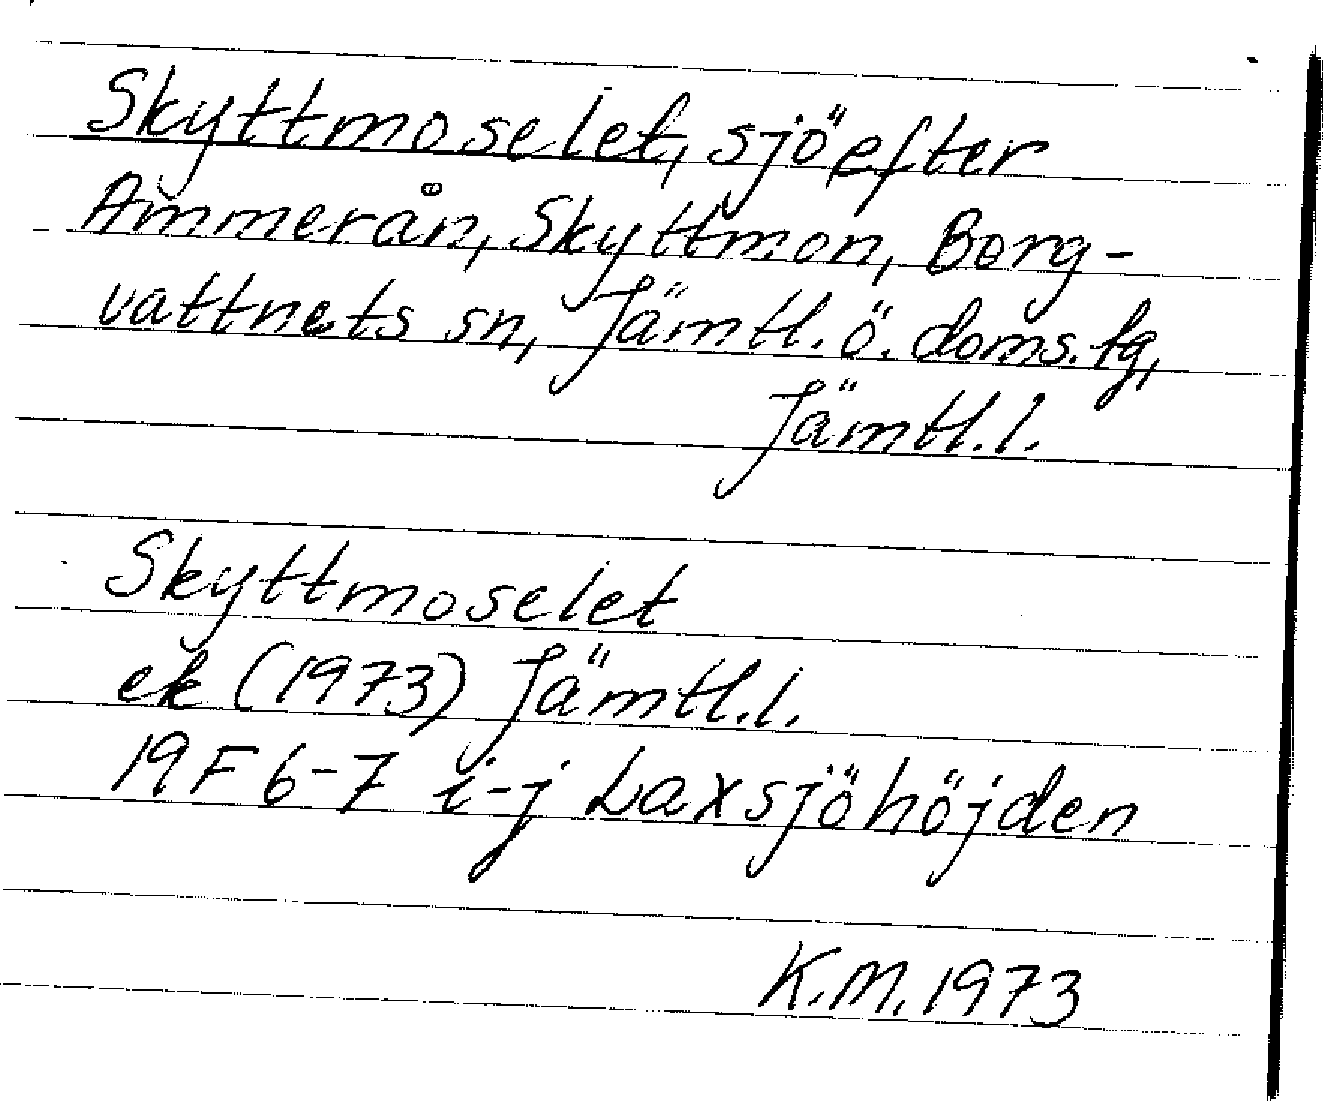 Skyttmoselet, sjö efter
Ammerån, Skyttmon, Borg-
vattnets sn, Jämtl. ö. doms. tg,
Jämtl. l.
Skyttmoselet
ek (1973) Jämtl. l.
19 F 6-7 i-j Laxsjöhöjden
K.M. 1973